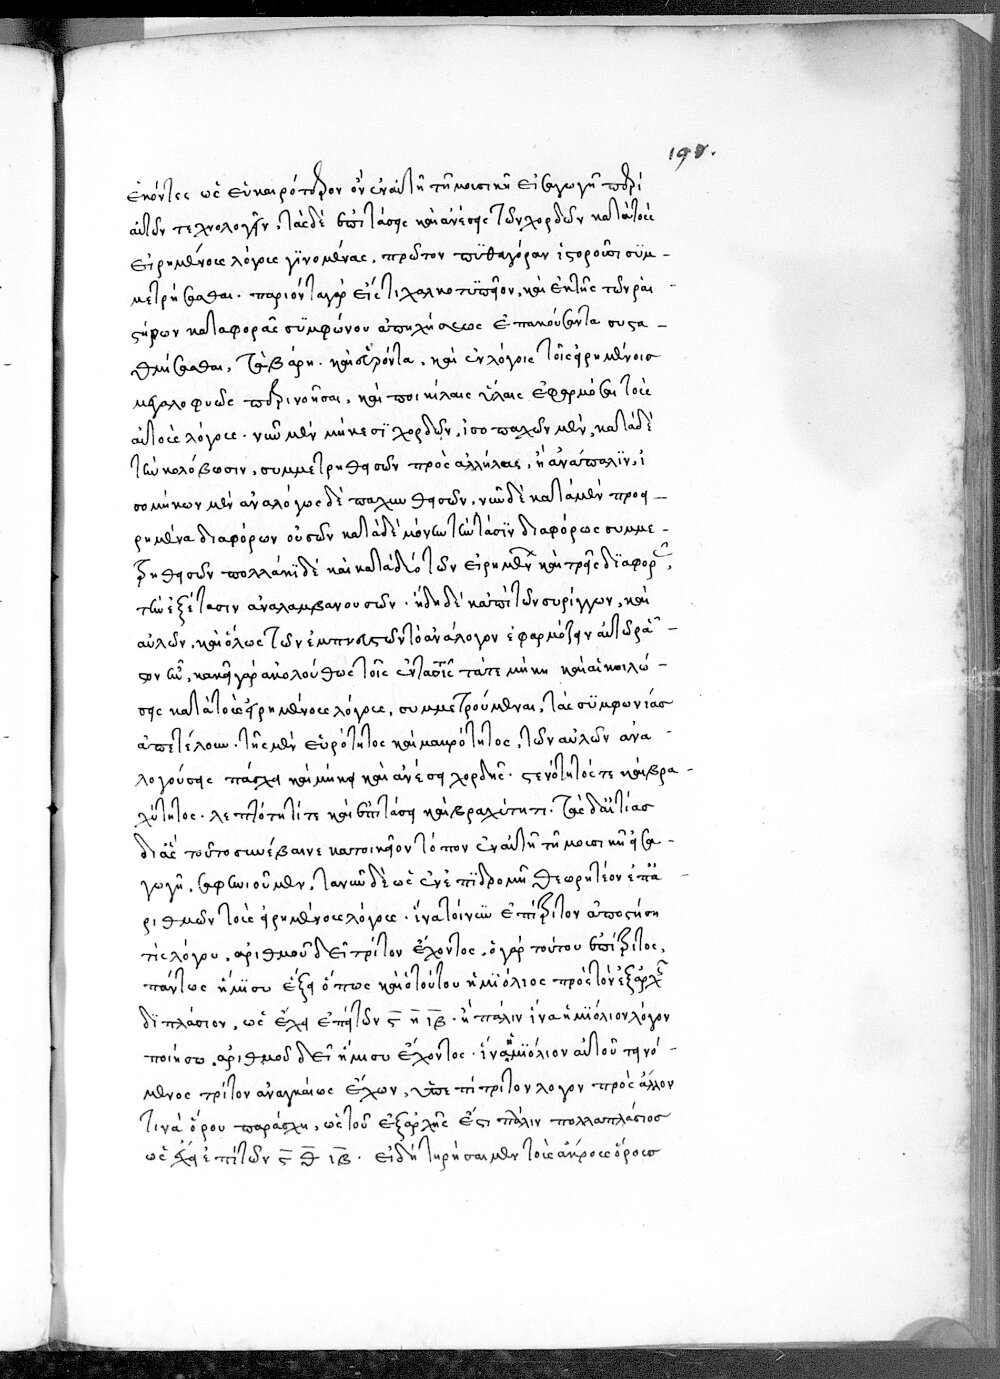 198.
ἑκόντες ὡς εὐκαιρότερον ὂν ἐν αὐτῇ τῇ μουσικῇ εἰσαγωγῇ περὶ
αὐτῶν τεχνολογεῖν, τὰς δὲ ἐπιτάσεις καὶ ἀνέσεις τῶν χορδῶν κατὰ τοὺς
εἰρημένους λόγους γϊνομένας, πρῶτον πυθαγόραν ἱστοροῦσι συμ-
μετρήσασθαι. παριόντα γὰρ εἰς τι χαλκοτυπεῖον, καὶ ἐκ τῆς τῶν ραι
στήρων καταφορᾶς συμφώνου ἀπηχήσεως ἐπακούσαντα συστα-
θμήσασθαι, τὰ βάρη. καὶ εὑρόντα, καὶ ἐν λόγοις τοῖς εἰρημένοις
μεγαλοφυῶς περινοῆσαι, καὶ ποικίλαις ὕλαις ἐφαρμόσαι τοὺς
αὐτοὺς λόγους. νῦν μὲν μήκεσϊ χορδῶν, ἰσοπαχῶν μὲν, κατὰ δὲ
τὴν κολόβωσιν, συμμετρηθεισῶν πρὸς ἀλλήλας, ἢ ἀνάπαλϊν, ἰ
σομήκων μὲν ἀναλόγως δὲ παχυνθεισῶν, νῦν δὲ κατὰ μὲν προει-
ρημένα διαφόρων οὐσῶν κατὰ δὲ μόνην τὴν τάσϊν διαφόρως συμμε-
τρηθεισῶν πολλάκϊ δὲ καὶ κατὰ δύο τῶν εἰρημένων
τὴν ἐξέτασιν ἀναλαμβανουσῶν. ἤδη δὲ κἀπὶ τῶν συρίγγων, καὶ
αὐλῶν, καὶ ὅλως τῶν ἐμπνευστῶν τὸ ἀνάλογον ἐφαρμόζειν αὐτῷ ρᾷ-
στον ἦν, κἀκεῖ γὰρ ἀκολούθως τοῖς ἐντατοῖς τά τε μήκη καὶ αἱ κοιλώ-
σεις κατὰ τοὺς εἰρημένους λόγους, συμμετρούμεναι, τὰς συμφωνίας
ἀπετέλουν. τῆς μὲν εὐρύτητος καὶ μακρότητος, τῶν αὐλῶν ἀνα-
λογούσης πάχει καὶ μήκει καὶ ἀνέσει χορδῆς. στενότητός τε καὶ βρα-
χύτητος. λεπτότητί τε καὶ ἐπιτάσει καὶ βραχύτητι. τὰς δ' αἰτίας
δι' ἃς τοῦτο συνέβαινε κατ' οἰκεῖον τόπον ἐν αὐτῇ τῇ μουσικῇ εἰσα-
γωγῇ, σαφηνιοῦμεν, τὰ νῦν δὲ ὡς ἐν ἐπϊδρομῇ θεωρητέον ἐπ' ἀ
ριθμῶν τοὺς εἰρημένους λόγους. ἵνα τοίνυν ἐπίτριτον ἀποστήσῃ
τις λόγου, ἀριθμοῦ δεῖ τρίτον ἔχοντος, ὁ γὰρ τούτου ἐπίτριτος,
πάντως ἥμϊσυ ἕξει ὅπως καὶ ὁ τούτου ἡμϊόλιος πρὸς τὸν ἐξ ἀρχῆς
δϊπλάσιον, ὡς ἔχει ἐπὶ τῶν ϛ η ιβ. ἢ πάλιν ἵνα ἡμϊόλιον λόγον
ποιήσω, ἀριθμοῦ δεῖ ἥμισυ ἔχοντος. ἵνα ἡμϊόλιον αὐτοῦ γενό-
μενος τρίτον ἀναγκαίως ἔχων, ἐπίτριτον λόγον πρὸς ἄλλον
τινὰ ὅρον παράσχῃ, ὡς τοῦ ἐξ ἀρχῆς ἔσται πάλιν πολλαπλάσιος
ὡς ἔχει ἐπὶ τῶν ϛ θ ιβ. εἰ δὴ τηρήσαιμεν τοὺς ἄκρους ὅρους